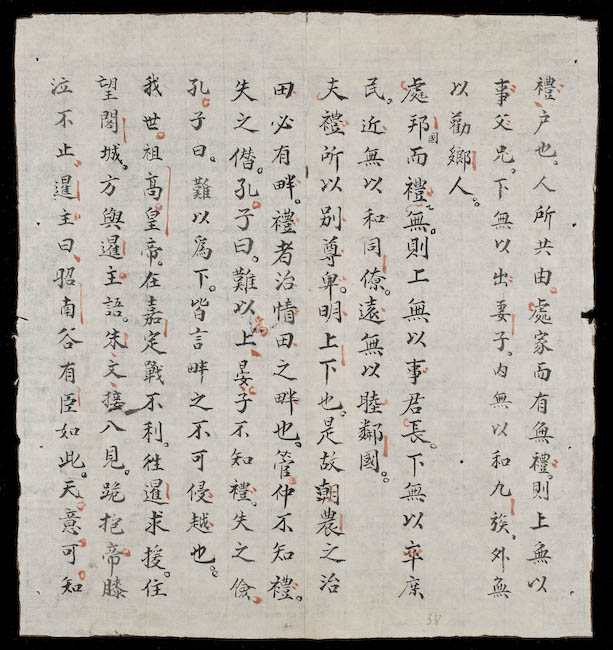 禮户也。人所共由。處家而有無禮。則上無以
事父兄。下無以出妻子。内無以和九族。外無
以勸鄉人。
處邦國而禮無。則上無以事君長。下無以率庶
民。近無以和同僚。遠無以睦鄰國。
夫禮所以别尊卑。明上下也。是故朝農之治
田必有畔。禮者治情田之畔也。管仲不知禮。
失之僭。孔子曰。難以爲上。晏子不知禮。失之儉。
孔子曰。難以爲下。皆言畔之不可侵越也。
我世祖高皇帝。在嘉定戰不利。徃暹求援。住
望閣城。方與暹主語。朱文接入見。跪抱帝膝
泣不止。暹主曰。招南谷有臣如此。天意可知
38